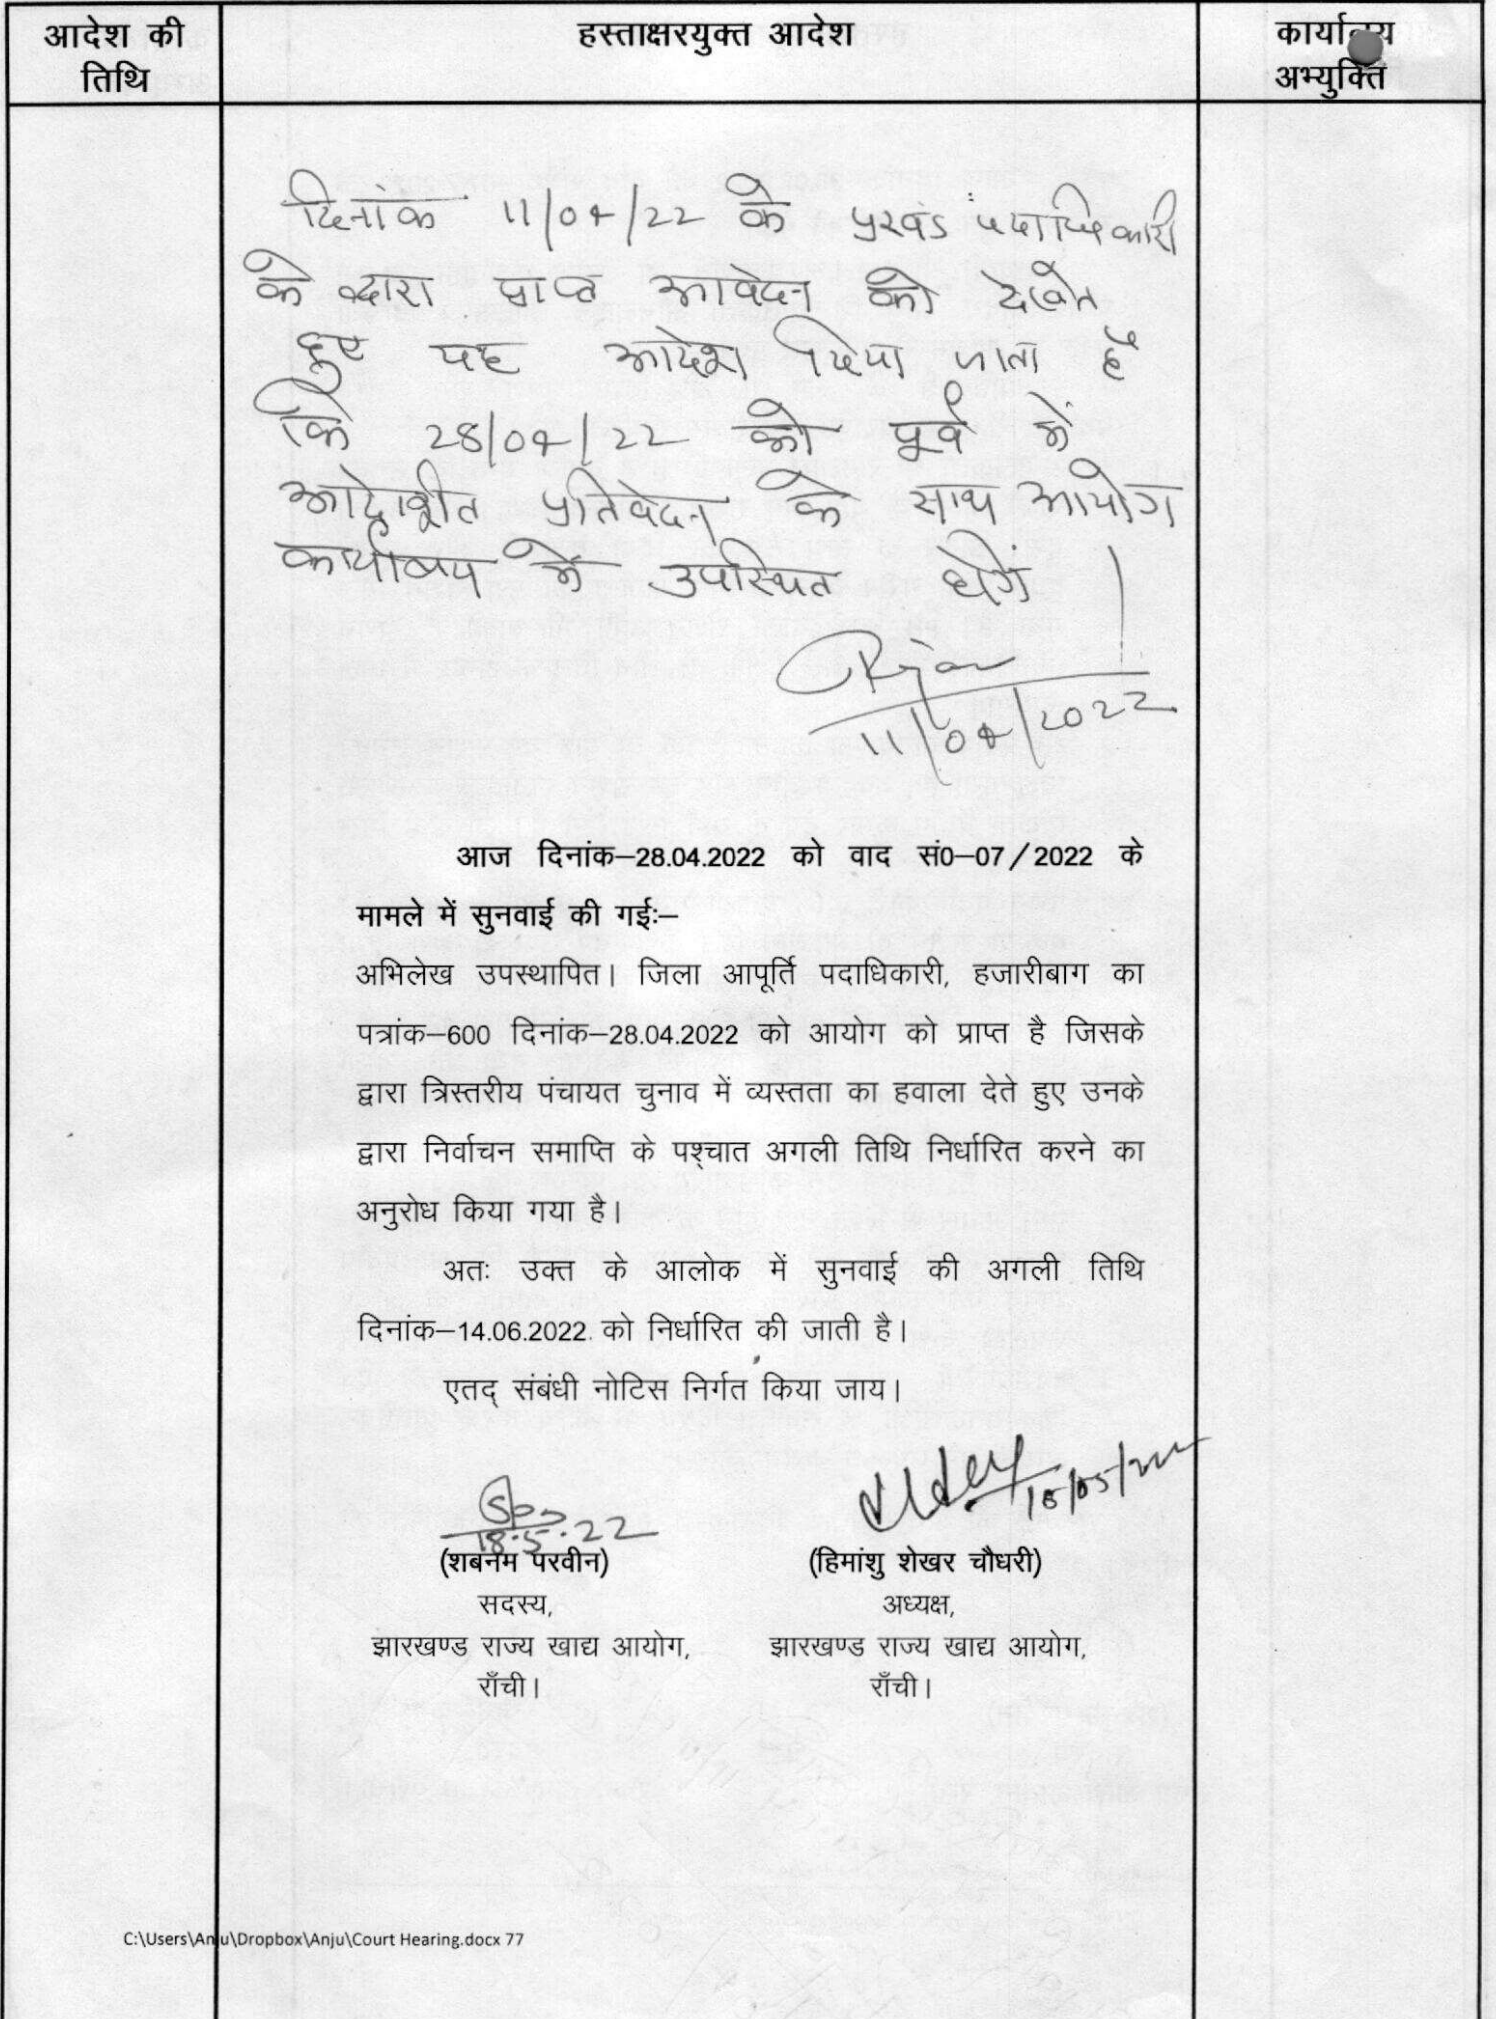 आदेश की
तिथि
हस्ताक्षरयुक्त आदेश
कार्यालय
अभ्युक्ति
दिनांक 11/04/22 के प्रखंड पदाधिकारी
के द्वारा प्राप्त आवेदन को देखते
हुए यह आदेश दिया जाता है
कि 28/04/22 को पूर्व में
आदेशित प्रतिवेदन के साथ आयोग
कार्यालय में उपस्थित होंगें।
11/04/2022
आज दिनांक–28.04.2022 को वाद सं0–07/2022 के
मामले में सुनवाई की गईः–
अभिलेख उपस्थापित। जिला आपूर्ति पदाधिकारी, हजारीबाग का
पत्रांक–600 दिनांक–28.04.2022 को आयोग को प्राप्त है जिसके
द्वारा त्रिस्तरीय पंचायत चुनाव में व्यस्तता का हवाला देते हुए उनके
द्वारा निर्वाचन समाप्ति के पश्चात अगली तिथि निर्धारित करने का
अनुरोध किया गया है।
अतः उक्त के आलोक में सुनवाई की अगली तिथि
दिनांक–14.06.2022 को निर्धारित की जाती है।
एतद् संबंधी नोटिस निर्गत किया जाय।
18.5.22
(शबनम परवीन)
सदस्य,
झारखण्ड राज्य खाद्य आयोग,
राँची।
(हिमांशु शेखर चौधरी)
अध्यक्ष,
झारखण्ड राज्य खाद्य आयोग,
राँची।
C:\Users\Anju\Dropbox\Anju\Court Hearing.docx 77